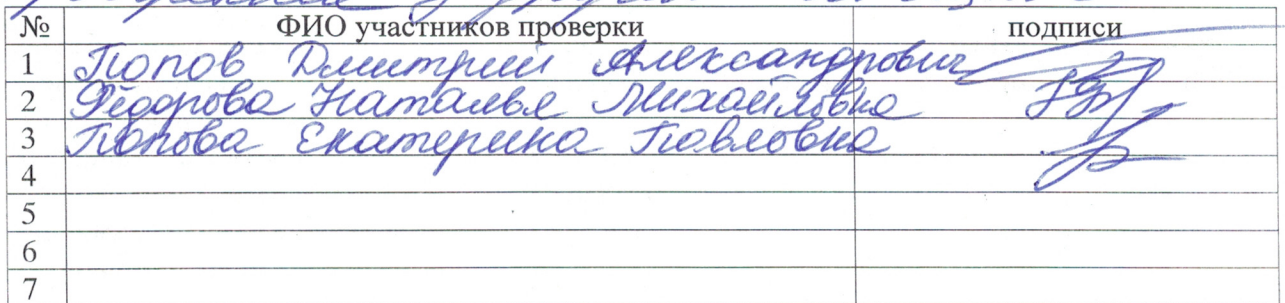 № ФИО участников проверки подписи
1 Попов Дмитрий Александрович
2 Фёдорова Наталья Михайловна
3 Попова Екатерина Павловна
4
5
6
7